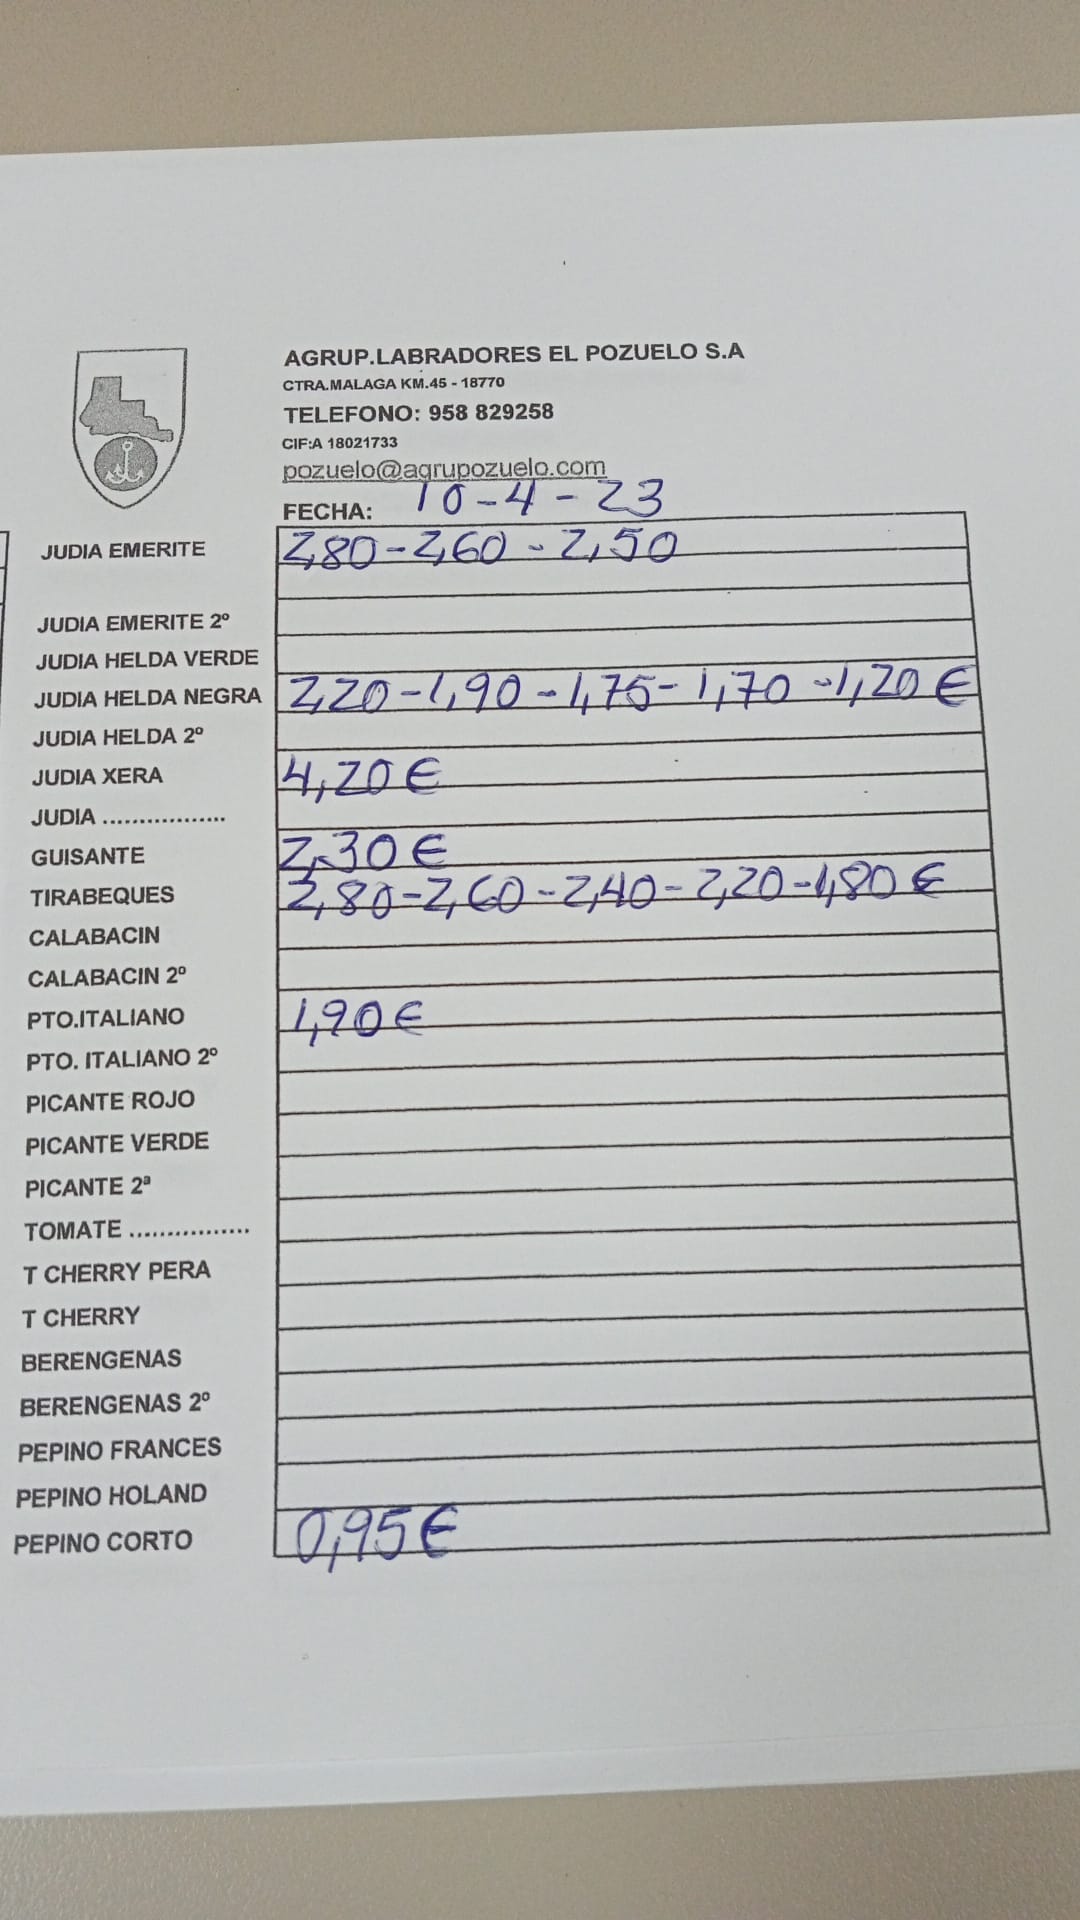 AGRUP.LABRADORES EL POZUELO S.A
CTRA.MALAGA KM.45 - 18770
TELEFONO: 958 829258
CIF:A 18021733
pozuelo@agrupozuelo.com
FECHA: 10-4-23
JUDIA EMERITE 2,80-2,60-2,50
JUDIA EMERITE 2º
JUDIA HELDA VERDE
JUDIA HELDA NEGRA 2,20-1,90-1,75-1,70-1,20€
JUDIA HELDA 2º
JUDIA XERA 4,20€
JUDIA .................
GUISANTE 2,30€
TIRABEQUES 2,80-2,60-2,40-2,20-1,80€
CALABACIN
CALABACIN 2º
PTO.ITALIANO 1,90€
PTO. ITALIANO 2º
PICANTE ROJO
PICANTE VERDE
PICANTE 2ª
TOMATE ................
T CHERRY PERA
T CHERRY
BERENGENAS
BERENGENAS 2º
PEPINO FRANCES
PEPINO HOLAND
PEPINO CORTO 0,95€